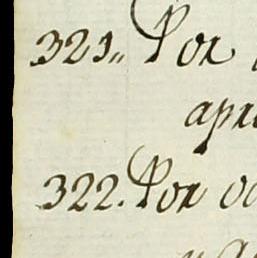 321,, Por
apr
322. Por oc